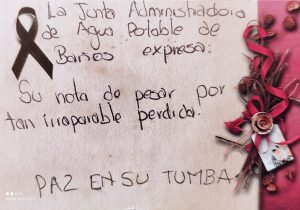 La Junta Administradora
de Agua Potable de
Barros expresa:
Su nota de pesar por
tan irreparable perdida.
PAZ EN SU TUMBA